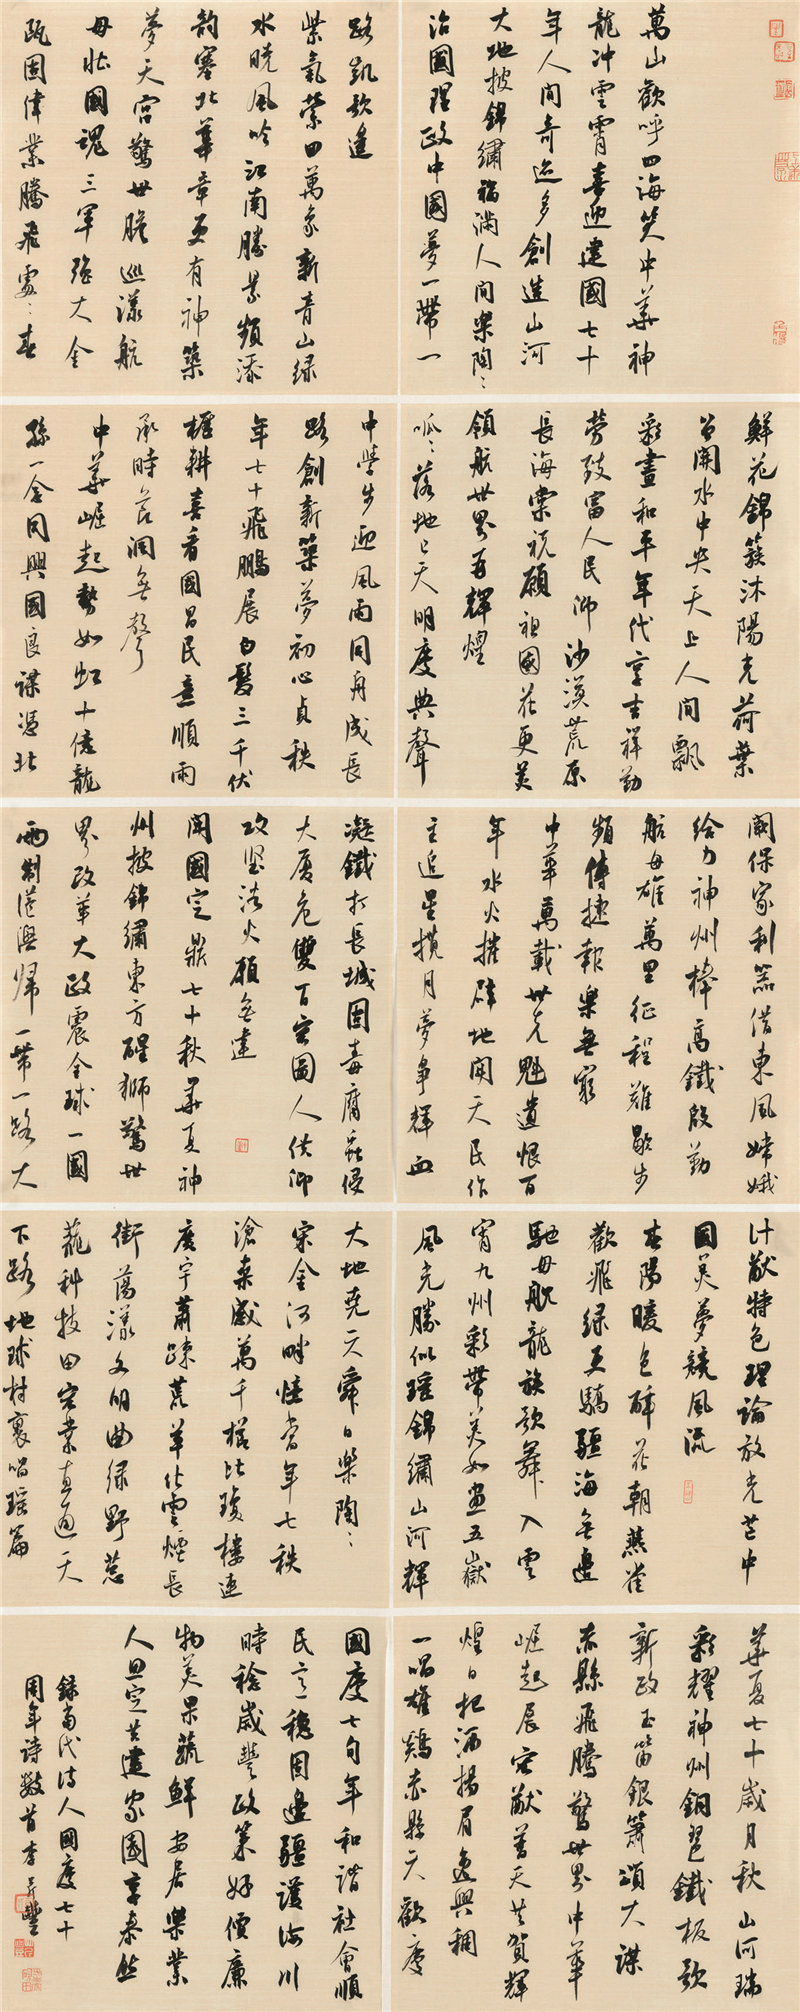 萬山歡呼四海笑中華神
龍冲雲霄喜迎建國七十
年人間奇迹多創造山河
大地披錦繡福滿人間樂陶〻
治國理政中國夢一帶一
路凱歌逢
紫氣縈田萬象新青山緑
水曉風吟江南勝景頻添
韵塞北華章更有神築
夢天宫驚世膽巡漾航
母壯國魂三軍强大金
甌固偉業騰飛處〻春
鮮花錦簇沐陽光荷葉
公開水中央天上人間飄
彩畫和平年代享吉祥勤
勞致富人民帥沙漠荒原
長海棠祝願祖國花更美
領航世界再輝煌
呱〻落地七天明慶典聲
中學步迎風雨同舟成長
路創新築夢初心貞秩
年七十飛鵬展白髮三千伏
櫪耕喜看國昌民意順雨
承時節潤無聲
中華崛起勢如虹十億龍
孫一念同興國良謀憑北
闕保家利器借東風嫦娥
給力神州棒高鐵啟勤
航母雄萬里征程難歇步
頻傳捷報樂無窮
中華萬載世光魁遺恨百
年水火摧辟地開天民作
主追星攬月夢争輝血
凝鐵打長城固毒腐蟲侵
大厦危雙百宏圖人供仰
攻堅浴火願無違
開國定鼎七十秋華夏神
州披錦繡東方醒獅驚世
界改革大政震全球一國
兩制港澳歸一帶一路大
計猷特色理論放光芒中
國美夢競風流
春陽暖色醉花朝燕雀
歡飛緑更驕疆海無邊
馳母艦龍族歌舞入雲
霄九州彩帶美如畫五嶽
風光勝似瑶錦繡山河輝
大地堯天舜日樂陶〻
宋金河畔憶當年七秩
滄桑感萬千櫛比瓊樓連
廣宇蕭疎荒草化雲煙長
街蕩漾文明曲緑野葱
蘢科技田宏業直通天
下路地球村裏唱瑶篇
華夏七十歲月秋山河瑞
彩耀神州銅琶鐵板歌
新政玉笛銀簫頌大謀
赤縣飛騰驚世界中華
崛起展宏猷普天共賀輝
煌日把酒揚眉逸興稠
一唱雄鷄赤縣天歡度
國慶七旬年和諧社會順
民意穩固邊疆護海川
時稔歲豐政策好價廉
物美果蔬鮮安居樂業
人思定共建家國享泰然
録當代詩人國慶七十
周年詩數首李昇豐